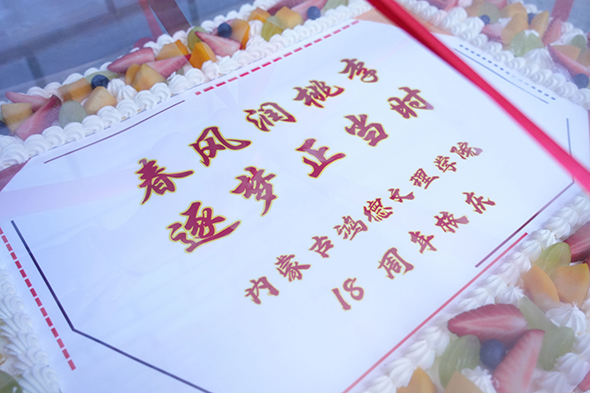 春风润桃李
逐梦正当时
内蒙古鸿德文理学院
18周年校庆